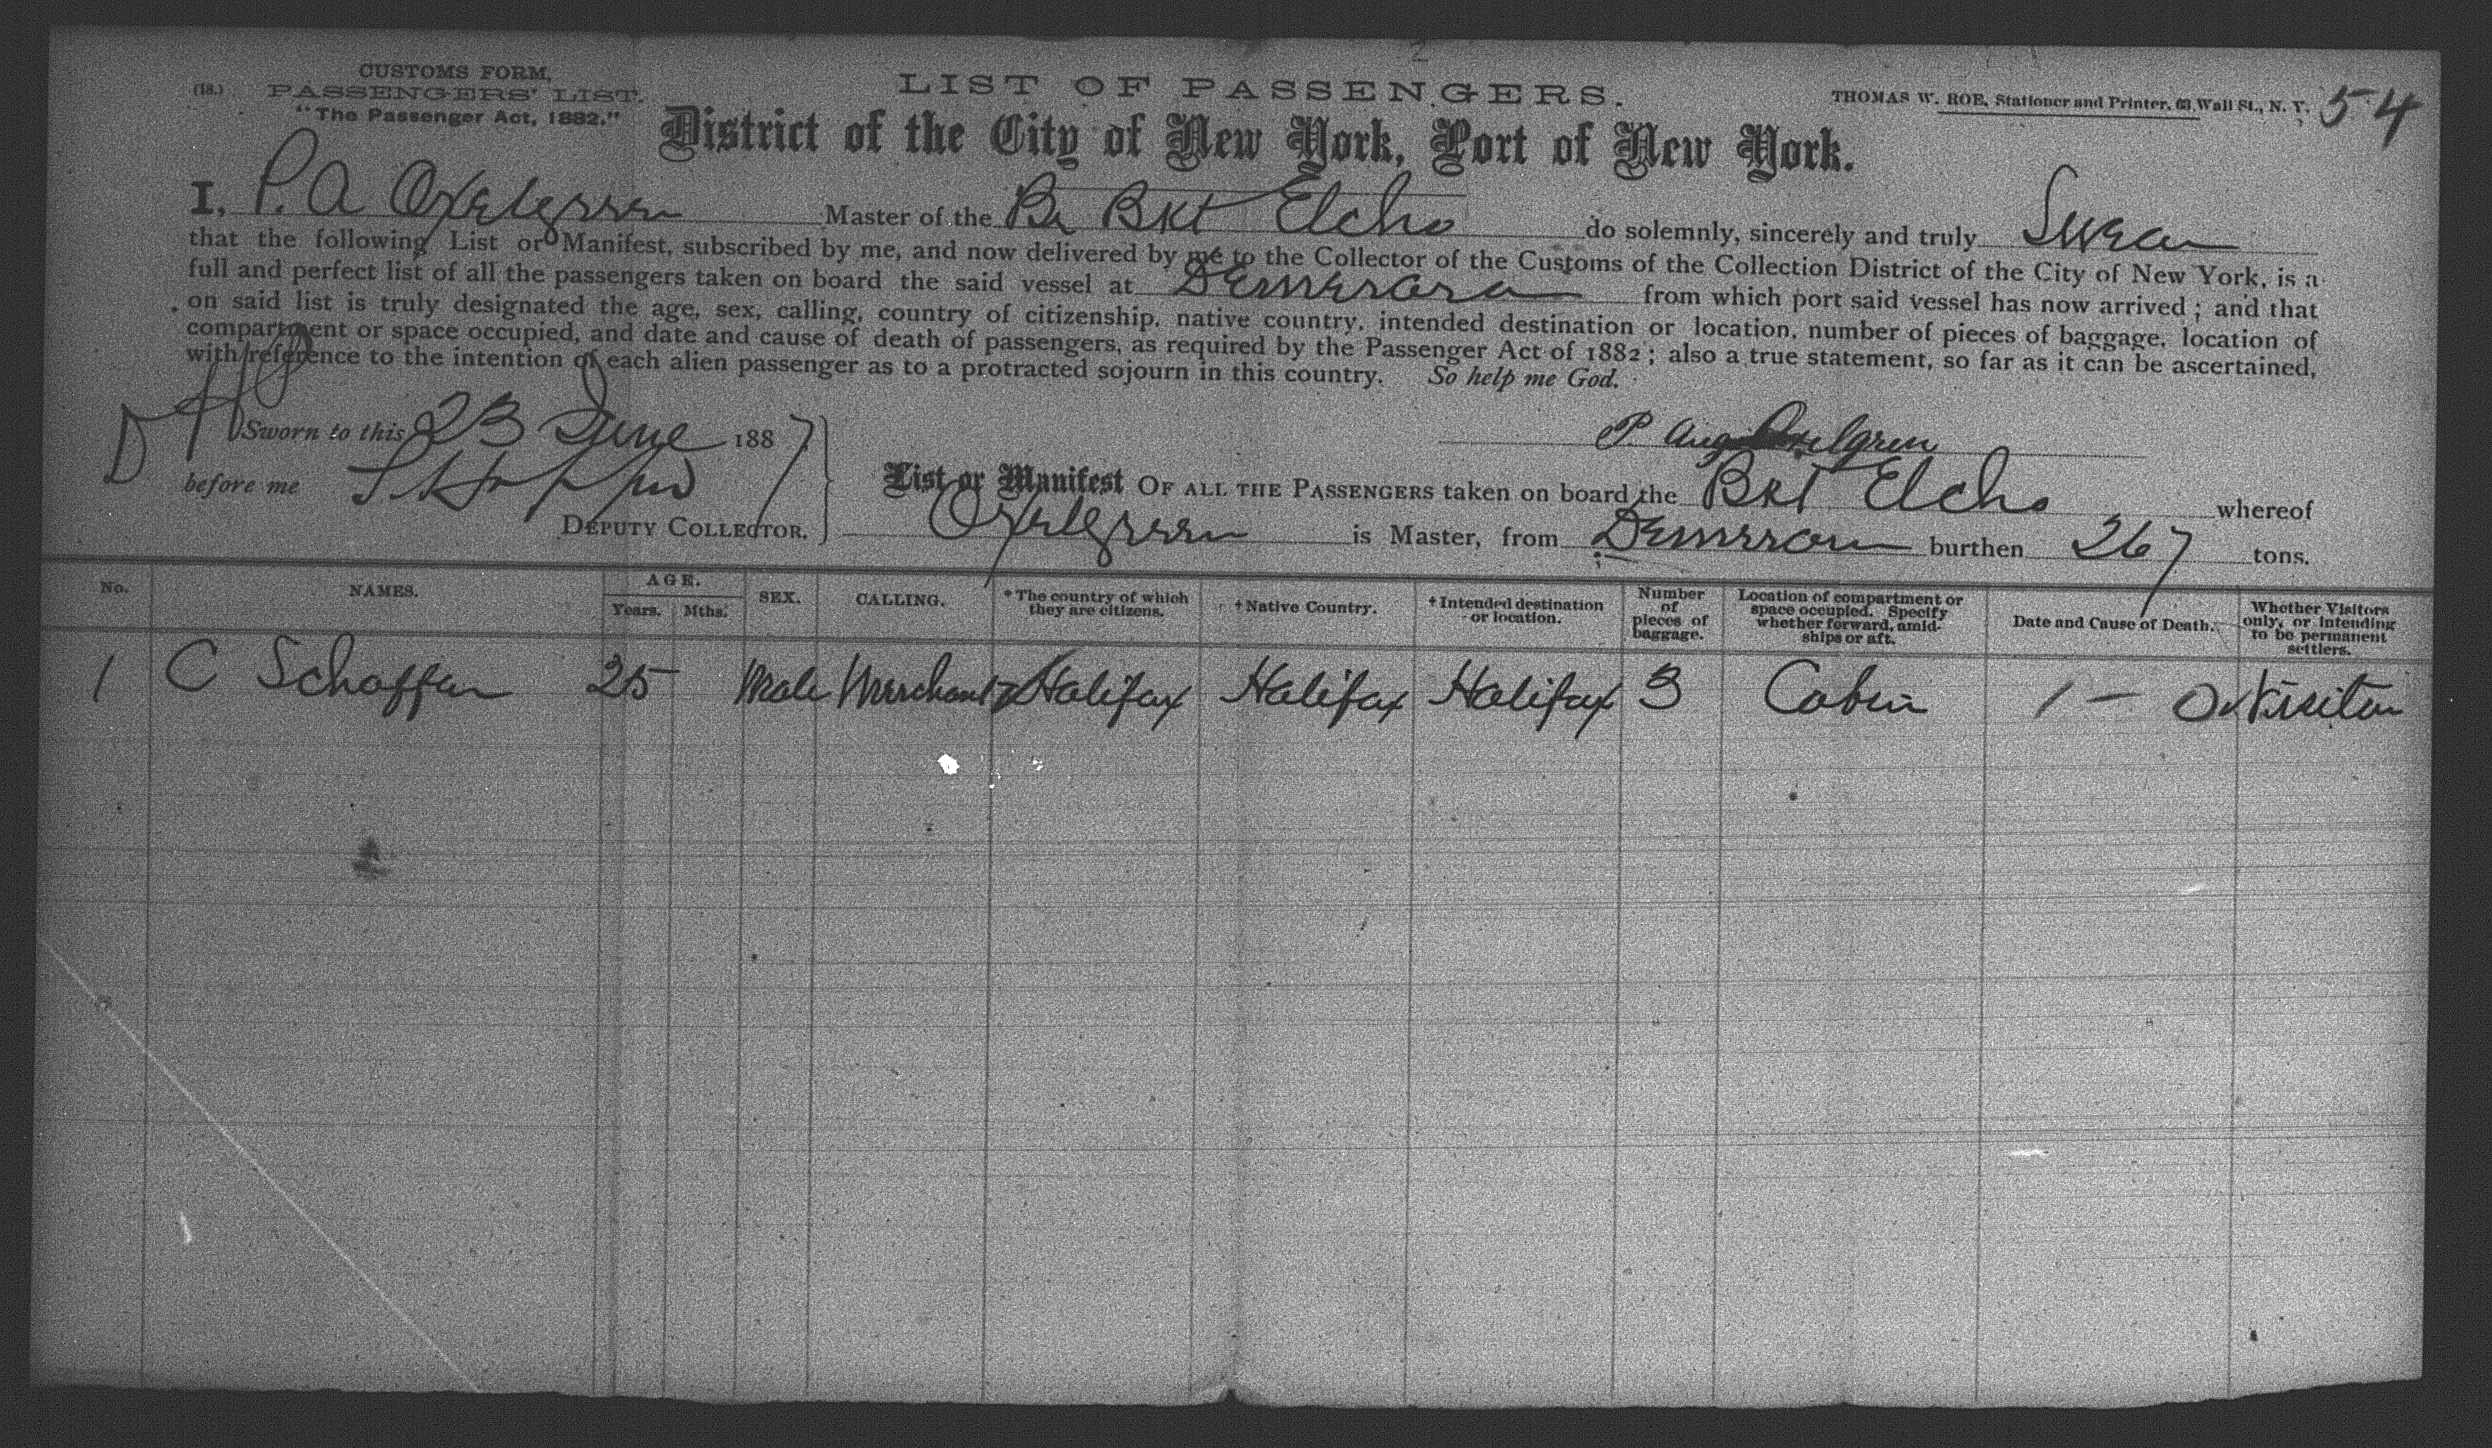 2
CUSTOMS FORM,
(18.) PASSENGERS' LIST.
"The Passenger Act, 1882."
LIST OF PASSENGERS.
THOMAS W. ROE, Stationer and Printer, 63 Wall St., N. Y.
54
District of the City of New York, Port of New York.
I, P. A Oxelgren Master of the Br Bkt Elcho do solemnly, sincerely and truly Swear
that the following List or Manifest, subscribed by me, and now delivered by me to the Collector of the Customs of the Collection District of the City of New York, is a
full and perfect list of all the passengers taken on board the said vessel at Demerara from which port said vessel has now arrived; and that
on said list is truly designated the age, sex, calling, country of citizenship, native country, intended destination or location, number of pieces of baggage, location of
compartment or space occupied, and date and cause of death of passengers, as required by the Passenger Act of 1882; also a true statement, so far as it can be ascertained,
with reference to the intention of each alien passenger as to a protracted sojourn in this country. So help me God.
Sworn to this 23 June 1887
P Aug Oxelgren
before me
DEPUTY COLLECTOR.
List or Manifest OF ALL THE PASSENGERS taken on board the Bkt Elcho whereof
Oxelgren is Master, from Demerara burthen 267 tons.
No. NAMES. AGE. Years. Mths. SEX. CALLING. *The country of which they are citizens. †Native Country. †Intended destination or location. Number of pieces of baggage. Location of compartment or space occupied. Specify whether forward, amidships or aft. Date and Cause of Death. Whether Visitors only, or intending to be permanent settlers.
1 C Schaffer 25 Male Merchant Halifax Halifax Halifax 3 Cabin Visitor